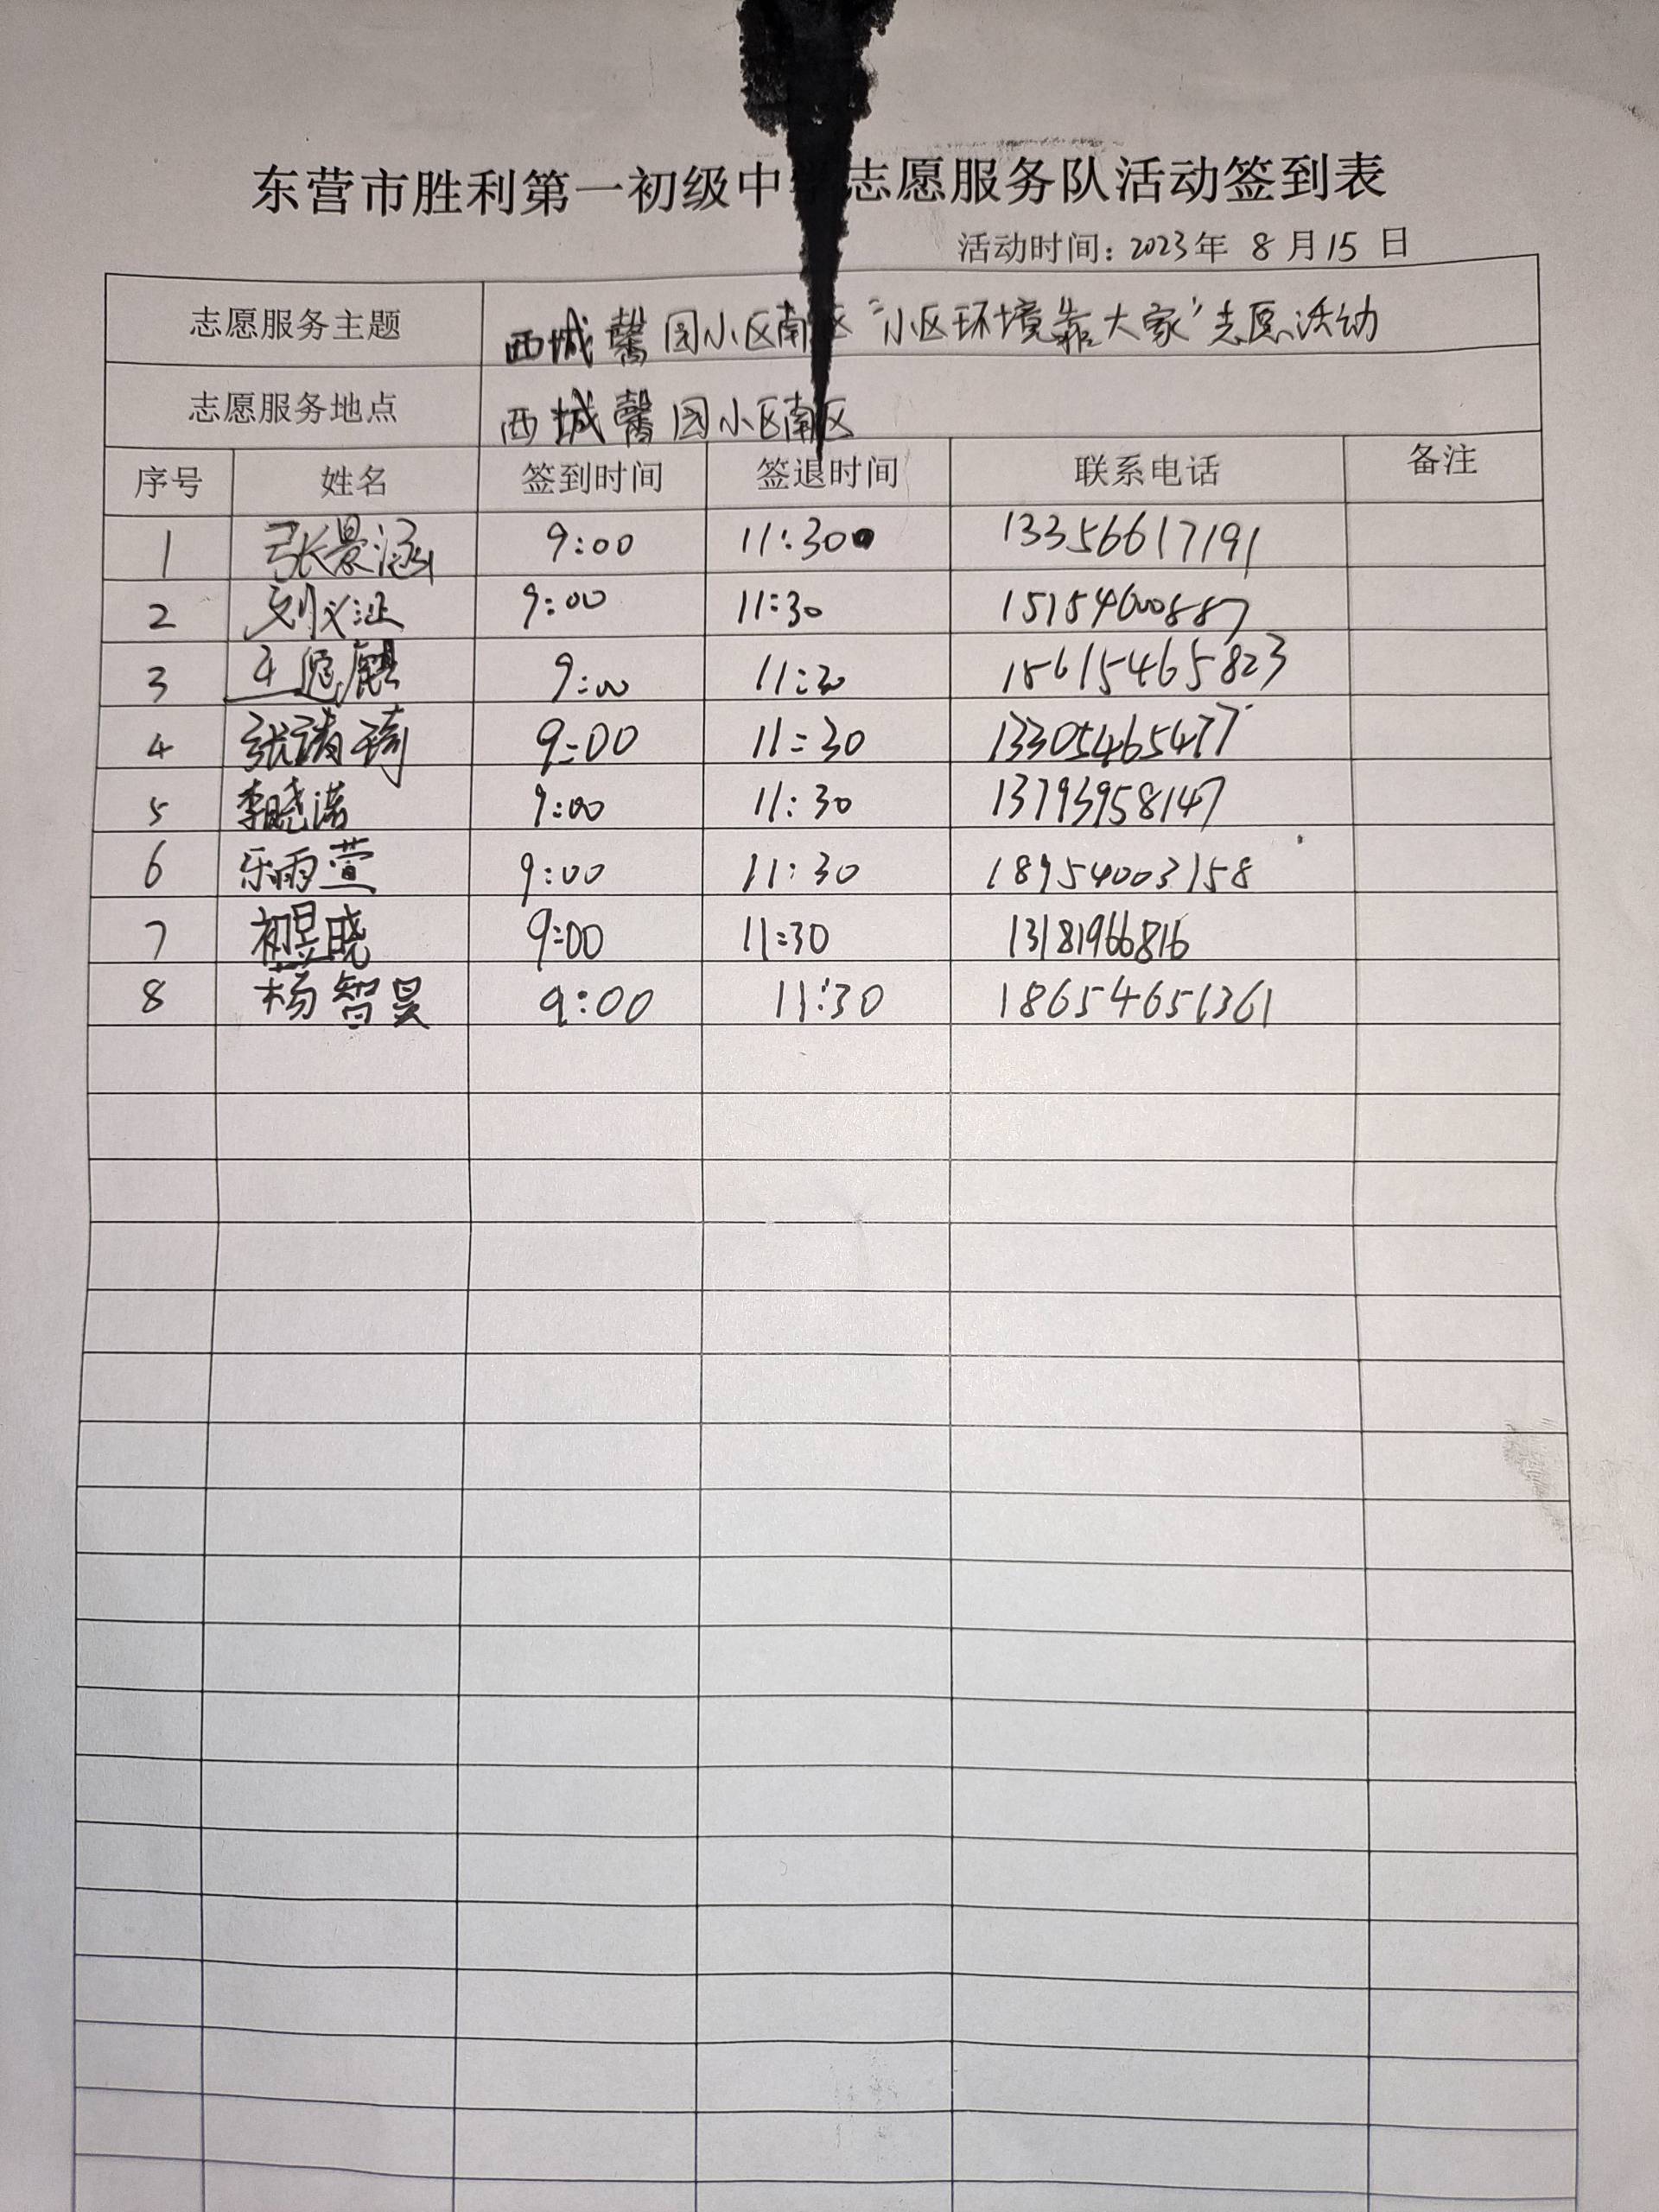 东营市胜利第一初级中 志愿服务队活动签到表
活动时间：2023年 8 月 15 日
志愿服务主题 西城馨园小区南区“小区环境靠大家”志愿活动
志愿服务地点 西城馨园小区南区
序号 姓名 签到时间 签退时间 联系电话 备注
1 张景涵 9:00 11:30 13356617191
2 9:00 11:30 15154600887
3 9:00 11:30 18615465823
4 张靖琦 9:00 11:30 13305465477
5 李晓诺 9:00 11:30 13793958147
6 乐雨萱 9:00 11:30 18954003158
7 初昱晓 9:00 11:30 13181966816
8 杨智昊 9:00 11:30 18654651361